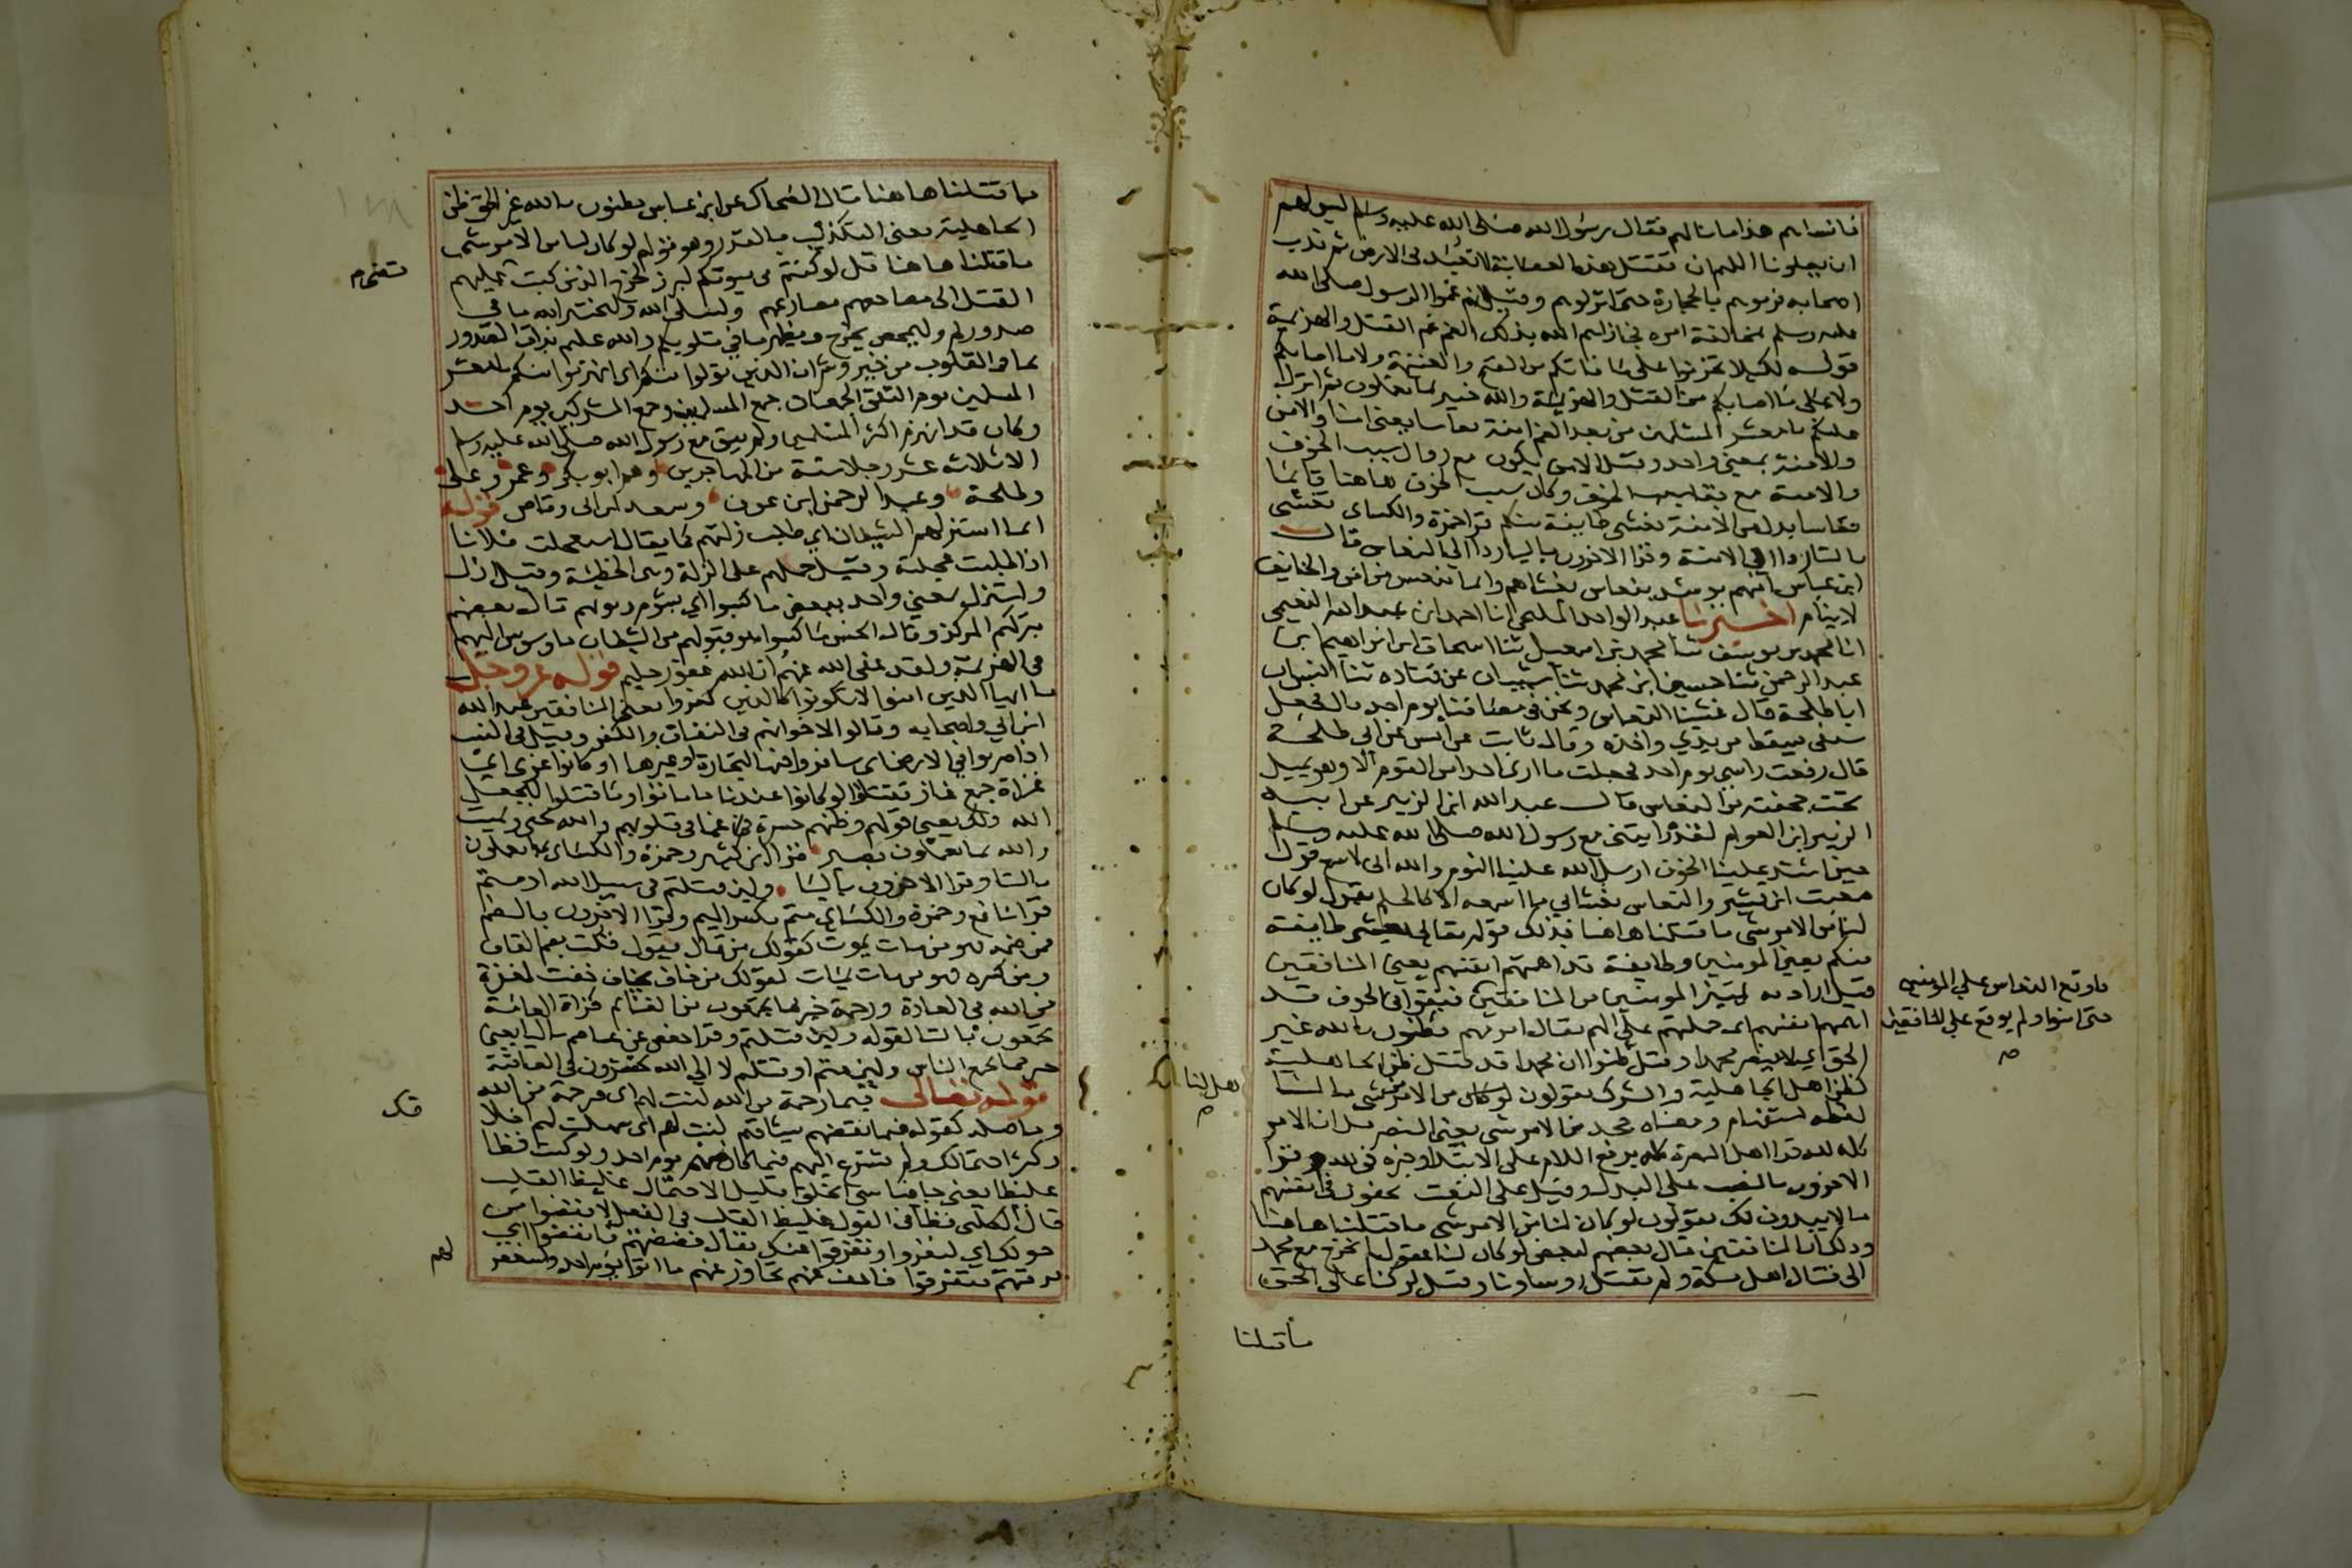 فانساهم هذا ما نالهم فقال رسول الله صلى الله عليه وسلم ليس لهم
ان يعلونا اللهم ان تقتل هذه العصابة لا تعبد في الارض ثم ندب
اصحابه فرموهم بالحجارة حتى انزلوهم وقيل انهم غموا الرسول صلى الله
عليه وسلم بمخالفة امره فجازاهم الله بذلك الغم غم القتل والهزيمة
قوله لكيلا تحزنوا على ما فاتكم من الفتح والغنيمة ولا ما اصابكم
ولا على ما اصابكم من القتل والهزيمة والله خبير بما تعملون ثم انزل
عليكم يا معشر المسلمين من بعد الغم امنة نعاسا يعني امنا والامن
والامنة بمعنى واحد وقيل الامن يكون مع زوال سبب الخوف
والامنة مع بقا سبب الخوف وكان سبب الخوف هاهنا قايما
نعاسا بدل من الامنة يغشى طايفة منكم قرا حمزة والكساى تغشى
بالتا ردا الى الامنة وقرا الاخرون باليا ردا الى النعاس قال
ابن عباس امنهم يومئذ بنعاس يغشاهم وانما ينعس من امن والخايف
لا ينام اخبرنا عبد الواحد المليحي انا احمد ابن عبد الله النعيمي
انا محمد بن يوسف ثنا محمد بن اسمعيل ثنا اسحاق ابن ابراهيم ابن
عبد الرحمن ثنا حسين ابن محمد ثنا شيبان عن قتاده ثنا انس ان
ابا طلحة قال غشينا النعاس ونحن في مصافنا يوم احد قال فجعل
سيفى يسقط من يدي واخذه وقال ثابت عن انس عن ابي طلحة
قال رفعت راسي يوم احد فجعلت ما ارى احدا من القوم الا وهو يميل
تحت جحفته من النعاس قال عبد الله ابن الزبير عن ابيه
الزبير ابن العوام لقد رايتني مع رسول الله صلى الله عليه وسلم
حين اشتد علينا الخوف ارسل الله علينا النوم والله اني لاسمع قول
معتب ابن قشير والنعاس يغشاني ما اسمعه الا كالحلم يقول لو كان
لنا من الامر شي ما قتلنا هاهنا فذلك قوله تعالى يغشى طايفة
منكم يعني المومنين وطايفة قد اهمتهم انفسهم يعني المنافقين
قيل اراد به تمييز المومنين من المنافقين فبقوا في الخوف قد
اهمتهم انفسهم اى حملتهم على الهم يقال امر مهم يظنون بالله غير
الحق اي لا ينصر محمدا وقيل ظنوا ان محمدا قد قتل ظن الجاهلية
كظن اهل الجاهلية والشرك يقولون لو كان من الامر من شي ما لنا
لفظه استفهام ومعناه جحد من الامر شي يعني النصر قل ان الامر
كله لله قرا اهل البصرة كله برفع اللام على الابتدا وخبره في لله وقرا
الاخرون بالنصب على البدل وقيل على النعت يخفون في انفسهم
ما لا يبدون لك يقولون لو كان لنا من الامر شي ما قتلنا هاهنا
وذلك ان المنافقين قال بعضهم لبعض لو كان لنا عقول لم نخرج مع محمد
الى قتال اهل مكة ولم يقتل روساونا وقيل لو كنا على الحق
ما وقع النعاس علي المومنين
حتى امنوا ولم يوقع علي المنافقين
هل لنا
ما قتلنا
ما قتلنا هاهنا قال الضحاك عن ابن عباس يظنون بالله غير الحق ظن
الجاهلية يعني التكذيب بالقدر وهو قولهم لو كان لنا من الامر شي
ما قتلنا هاهنا قل لو كنتم في بيوتكم لبرز لخرج الذين كتب عليهم
القتل الى مضاجعهم مصارعهم وليبتلي الله وليختبر الله ما في
صدوركم وليمحص يخرج ويظهر ما في قلوبكم والله عليم بذات الصدور
بما في القلوب من خير وشر ان الذين تولوا منكم اى انهزموا منكم يا معشر
المسلمين يوم التقى الجمعان جمع المسلمين وجمع المشركين يوم احد
وكان قد انهزم اكثر المسلمين ولم يبق مع رسول الله صلى الله عليه وسلم
الا ثلاثة عشر رجلا ستة من المهاجرين وهم ابو بكر وعمر وعلى
وطلحة وعبد الرحمن ابن عوف وسعد ابن ابى وقاص قوله
انما استزلهم الشيطان اي طلب زلتهم كما يقال استعجلت فلانا
اذا طلبت عجلته وقيل حملهم على الزلة وهى الخطيئة وقيل ازل
واستزل بمعني واحد ببعض ما كسبوا اي بشوم ذنوبهم قال بعضهم
بتركهم المركز وقال الحسن ما كسبوا هو قبولهم من الشيطان ما وسوس اليهم
من الهزيمة ولقد عفى الله عنهم ان الله غفور حليم قوله عز وجل
يا ايها الذين امنوا لا تكونوا كالذين كفروا يعني المنافقين عبد الله
ابن ابي واصحابه وقالوا لاخوانهم في النفاق والكفر وقيل في النسب
اذا ضربوا في الارض اى سافروا فيها لتجارة او غيرها او كانوا غزى اي
غزاة جمع غاز فقتلوا لو كانوا عندنا ما ماتوا وما قتلوا ليجعل
الله ذلك يعني قولهم وظنهم حسرة غما في قلوبهم والله يحيي ويميت
والله بما تعملون بصير قرا ابن كثير وحمزة والكساى بما يعملون
باليا وقرا الاخرون بالتا ولئن قتلتم في سبيل الله او متم
قرا نافع وحمزة والكساي متم بكسر الميم وقرا الاخرون بالضم
فمن ضمه فهو من مات يموت كقولك من قال يقول قلت بضم القاف
ومن كسره فهو من مات يمات كقولك من خاف يخاف خفت لمغفرة
من الله في العاقبة ورحمة خير مما يجمعون من الغنايم قراة العامة
تجمعون بالتا لقوله ولئن قتلتم وقرا حفص عن عاصم باليا يعني
خير مما يجمع الناس ولئن متم او قتلتم لا الي الله تحشرون في العاقبة
قوله تعالى فبما رحمة من الله لنت لهم اى فرحمة من الله
وما صلة كقوله فبما نقضهم ميثاقهم لنت لهم اى سهلت لهم اخلا
وكثرة احتمالك ولم تسرع اليهم فيما كان منهم يوم احد ولو كنت فظا
غليظا يعني جافيا سيى الخلق قليل الاحتمال غليظ القلب
قال الكلبى فظا في القول غليظ القلب في الفعل لا نفضوا من
حولك اي لنفروا وتفرقوا عنك يقال فضضتهم فانفضوا اي
فرقتهم فتفرقوا فاعف عنهم تجاوز عنهم ما اتوا يوم احد واستغفر
قك
لهم